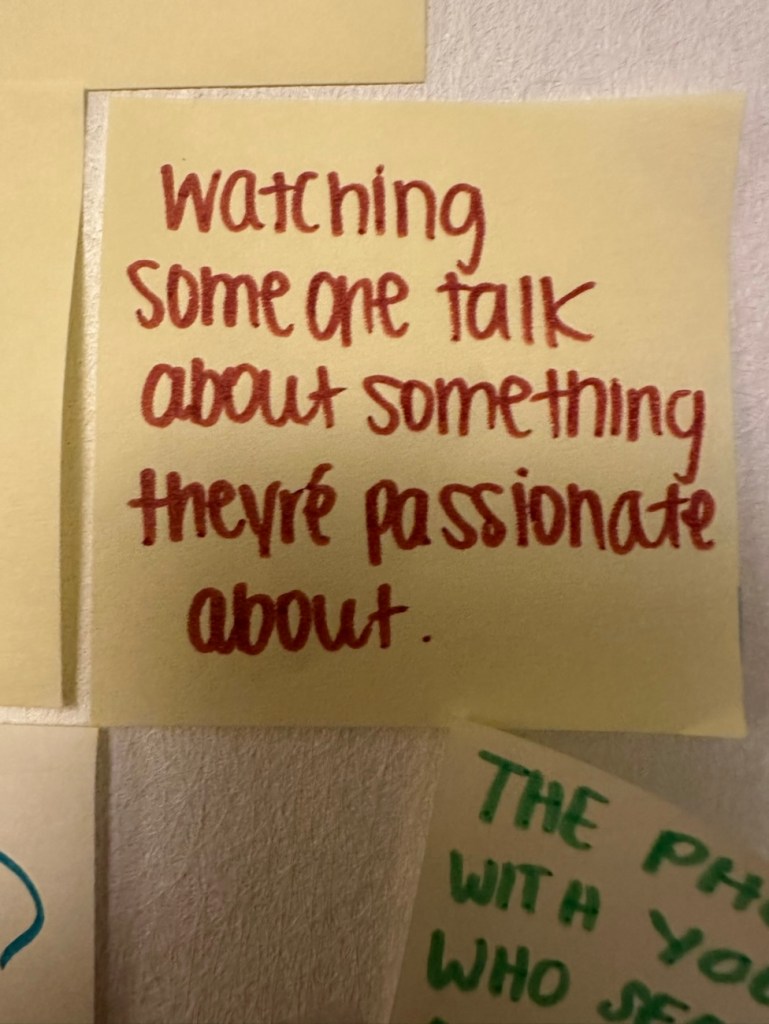 watching
someone talk
about something
theyr'e passionate
about.
THE
WITH
WHO